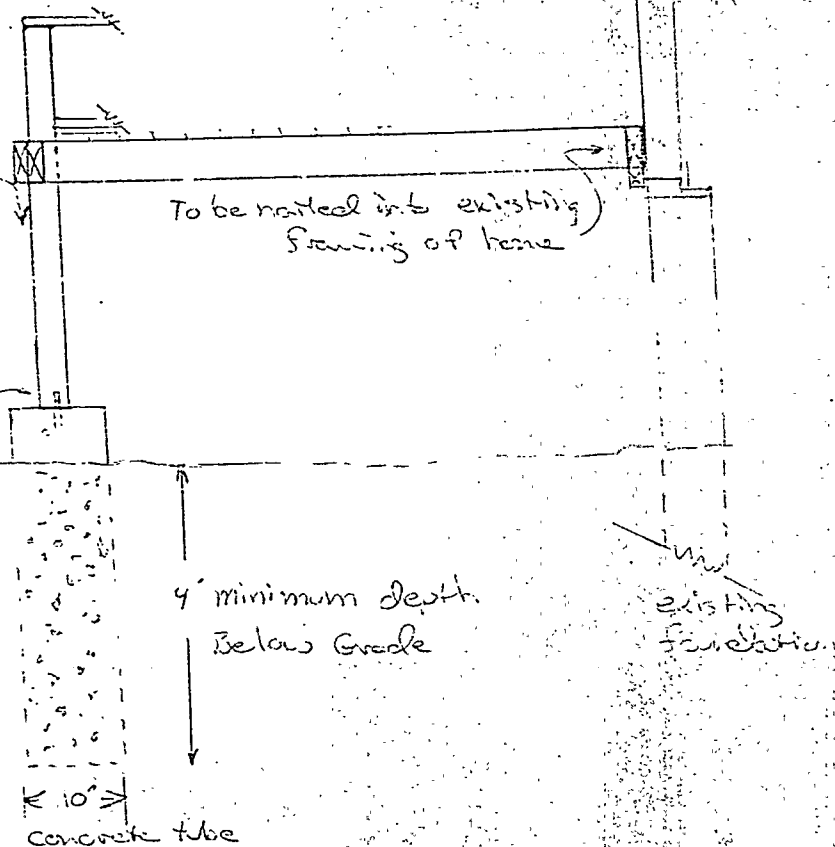 To be nailed into existing
framing of home
4' minimum depth
Below Grade
existing
foundation
10"
concrete tube